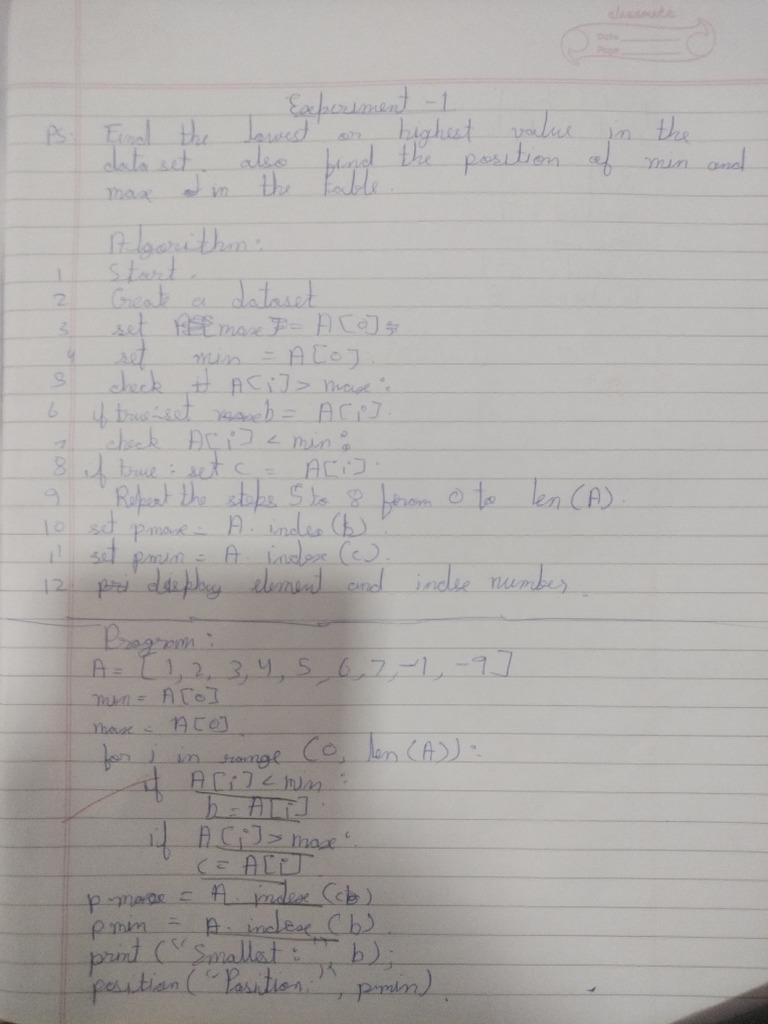 classmate
Date
Page
Experiment - 1
PS: Find the lowest or highest value in the
data set. also find the position of min and
max in the table.
Algorithm:
1 Start.
2 Create a dataset
3 set max = A[0]
4 set min = A[0].
5 check A[i] > max:
6 if true: set b = A[i].
7 check A[i] < min:
8 if true: set c = A[i].
9 Repeat the steps 5 to 8 from 0 to len(A).
10 set pmax = A. index (b).
11 set pmin = A. index (c).
12 display element and index number.
Program:
A = [1, 2, 3, 4, 5, 6, 7, -1, -9]
min = A[0]
max = A[0]
for i in range (0, len(A)):
if A[i] < min :
b = A[i]
if A[i] > max:
c = A[i]
p max = A. index (c)
pmin = A. index (b)
print ("Smallest: ", b);
position ("Position:", pmin)